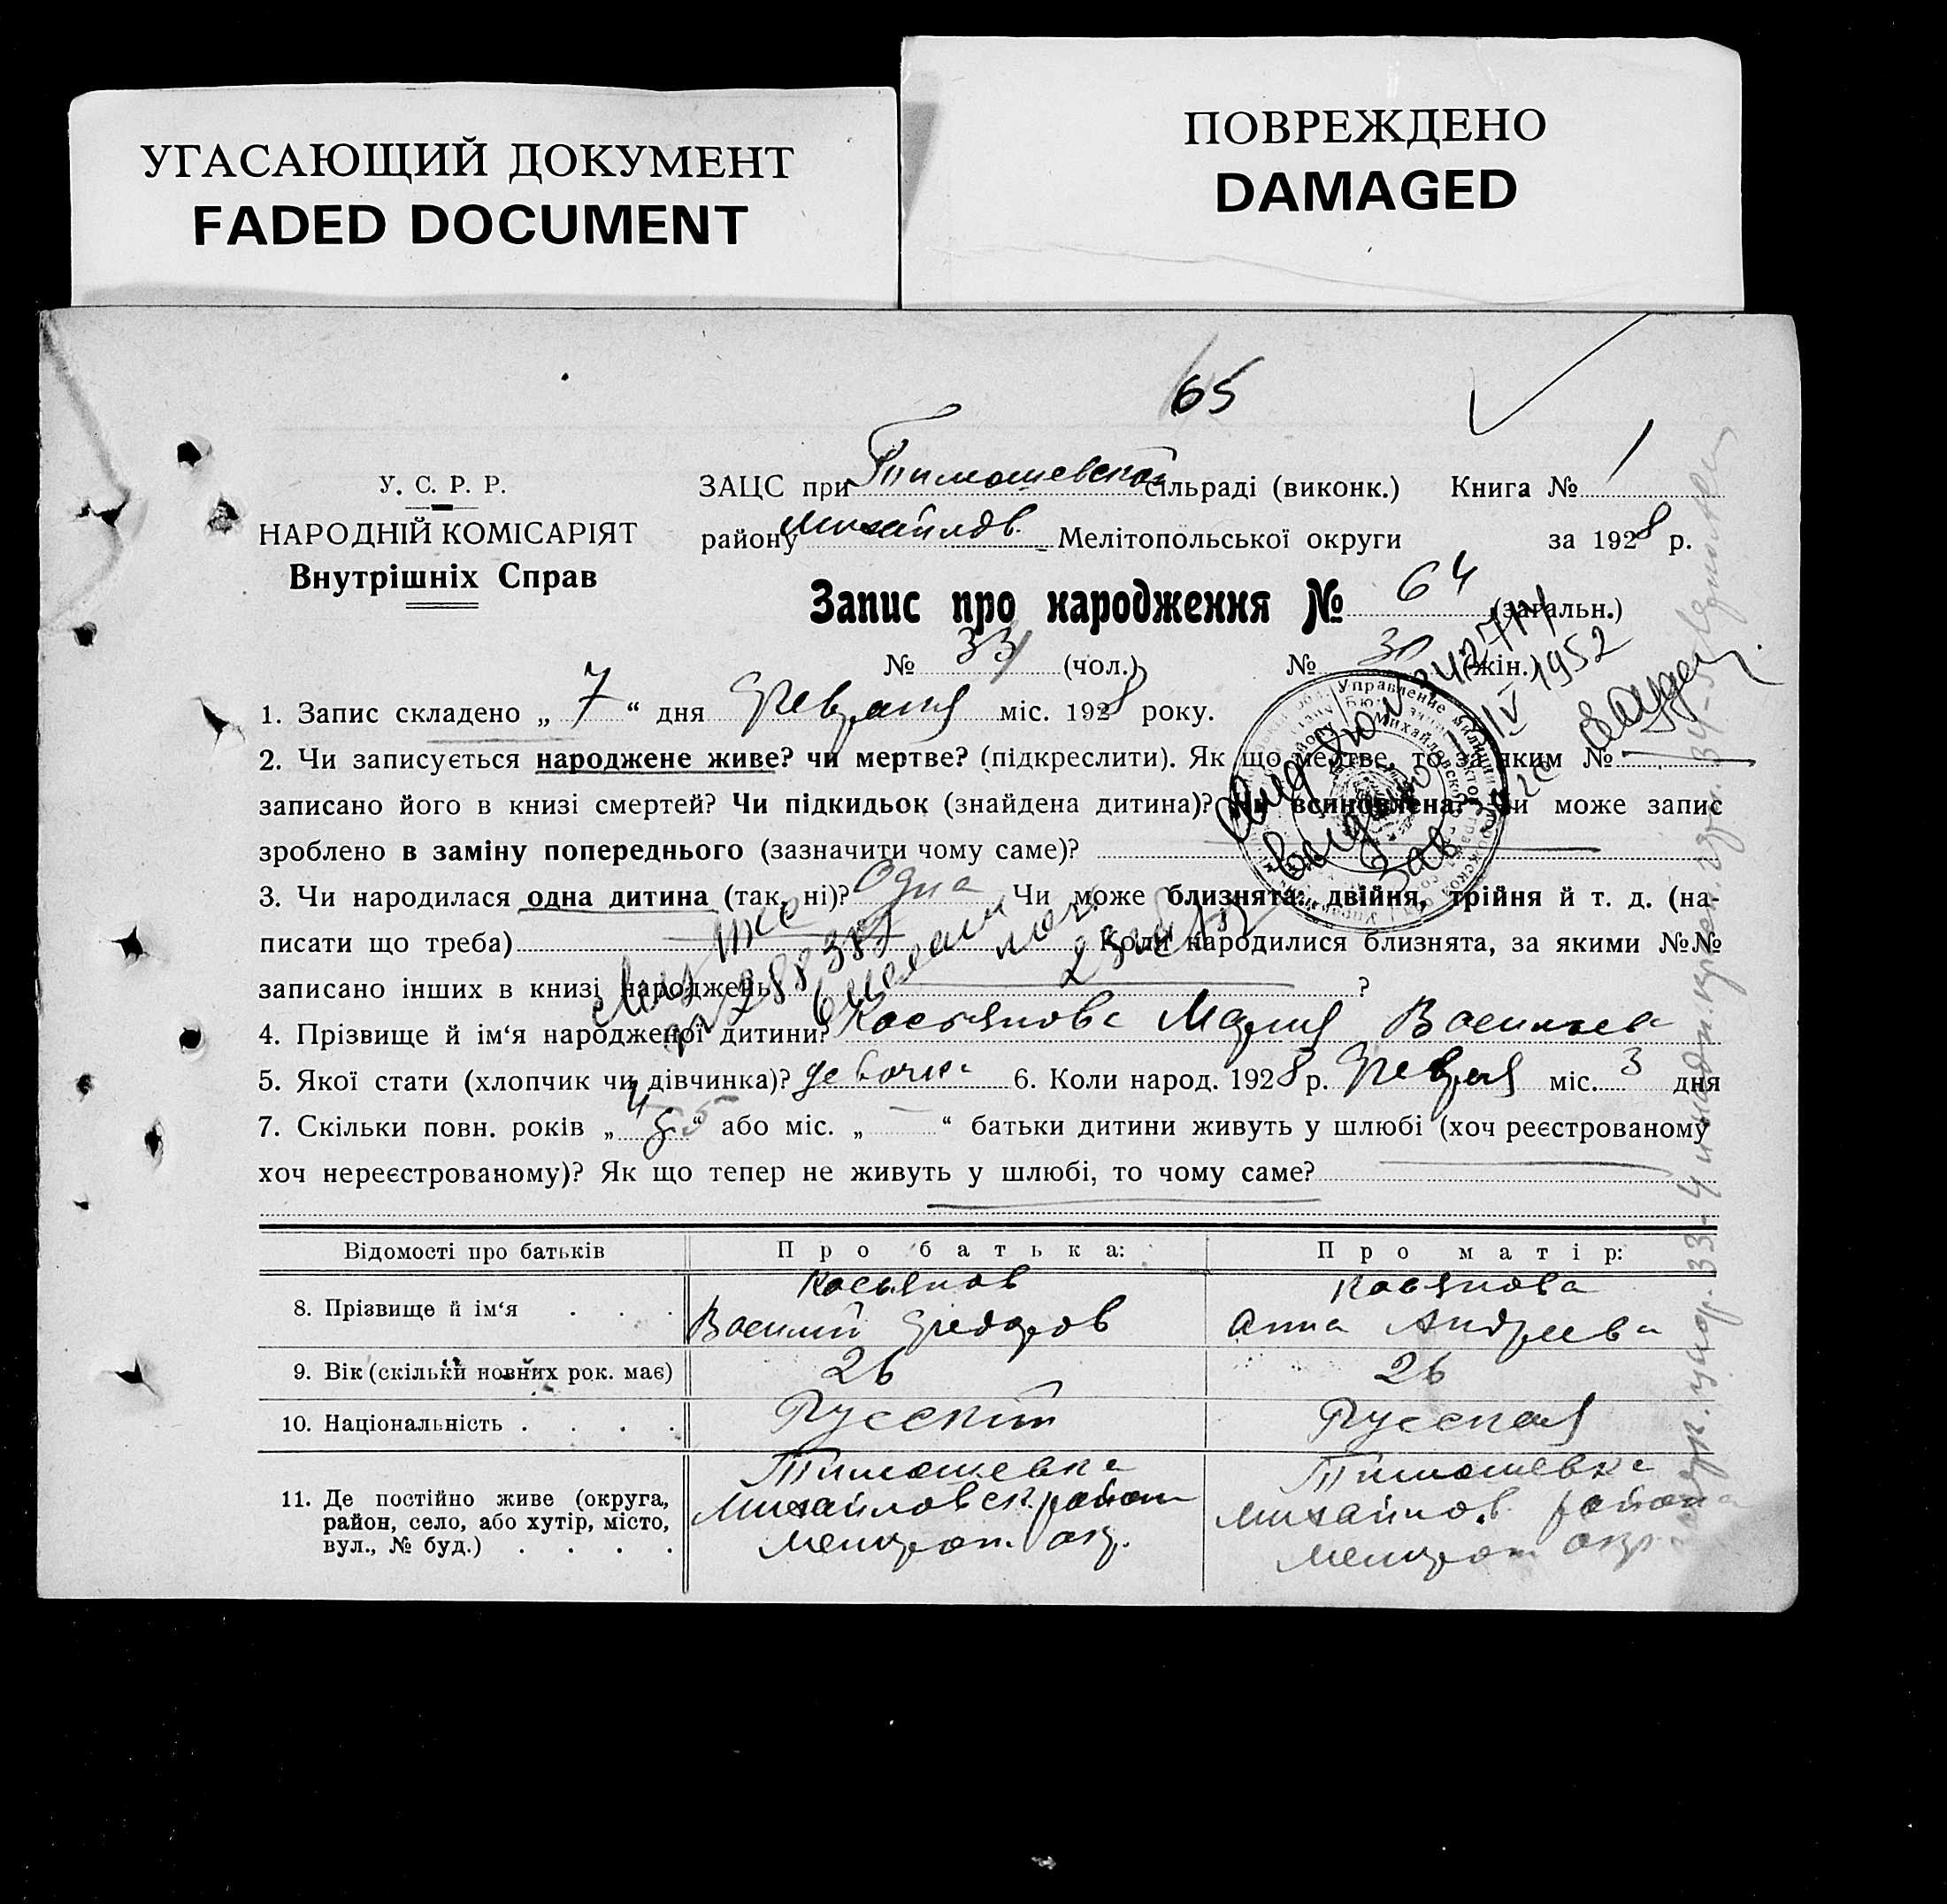 УГАСАЮЩИЙ ДОКУМЕНТ
FADED DOCUMENT
ПОВРЕЖДЕНО
DAMAGED
65
У. С. Р. Р.
НАРОДНІЙ КОМІСАРІЯТ
Внутрішніх Справ
ЗАЦС при Тимошевской сільраді (виконк.) Книга № 1
району Михайлов. Мелітопольської округи за 1928 р.
Запис про народження № 64 (загальн.)
№ 33 (чол.) № (жін.)
1. Запис складено „ 7 “ дня Февраля міс. 1928 року.
2. Чи записується народжене живе? чи мертве? (підкреслити). Як що мертве, то за яким №
записано його в книзі смертей? Чи підкидьок (знайдена дитина)? Чи всиновлена? Чи може запис
зроблено в заміну попереднього (зазначити чому саме)?
3. Чи народилася одна дитина (так, ні)? Одна Чи може близнята: двійня, трійня й т. д. (на-
писати що треба) Коли народилися близнята, за якими №№
записано інших в книзі народжень ?
4. Прізвище й ім‘я народженої дитини? Косьянова Мария Васильев
5. Якої стати (хлопчик чи дівчинка)? девочка 6. Коли народ. 1928 р. Февраля міс. 3 дня
7. Скільки повн. років „ “ або міс. „ — “ батьки дитини живуть у шлюбі (хоч реєстрованому
хоч нереєстрованому)? Як що тепер не живуть у шлюбі, то чому саме?
Відомості про батьків Про батька: Про матір:
8. Прізвище й ім‘я . . . Косьянов Косьянова
Василий Федоров Анна Андреева
9. Вік (скільки повних рок. має) 26 26
10. Національність . . . . Русскій Русская
11. Де постійно живе (округа, район, село, або хутір, місто, вул., № буд.) . . . .
Тимошевка Тимошевка
Михайловск. район Михайлов. района
Мелитоп. окр. Мелитоп окр
1952